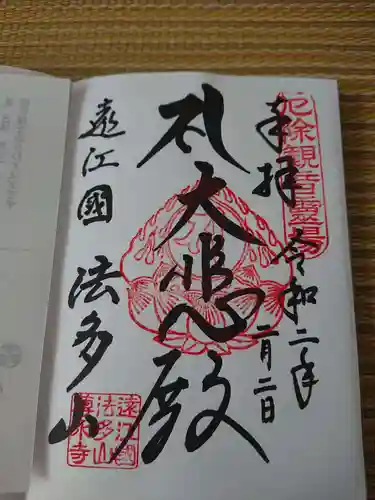 厄除観音霊場
奉拝
令和二年
二月二日
大悲殿
遠江國
法多山
遠江國
法多山
尊永寺